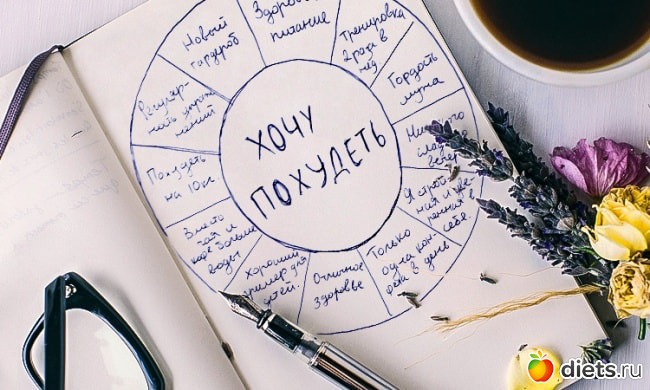 ХОЧУ
ПОХУДЕТЬ
Здоровое
питание
Тренировка
2 раза в
нед
Гордость
мужа
сладкого
вечером
Я строй-
ная и уве-
ренная в
себе.
Только
одна кон-
фета в день
Отличное
здоровье
Хороший
пример для
детей.
Вместо
чая и
кофе больше
воды
Похудеть
на 10кг
Новый
гардероб
diets.ru